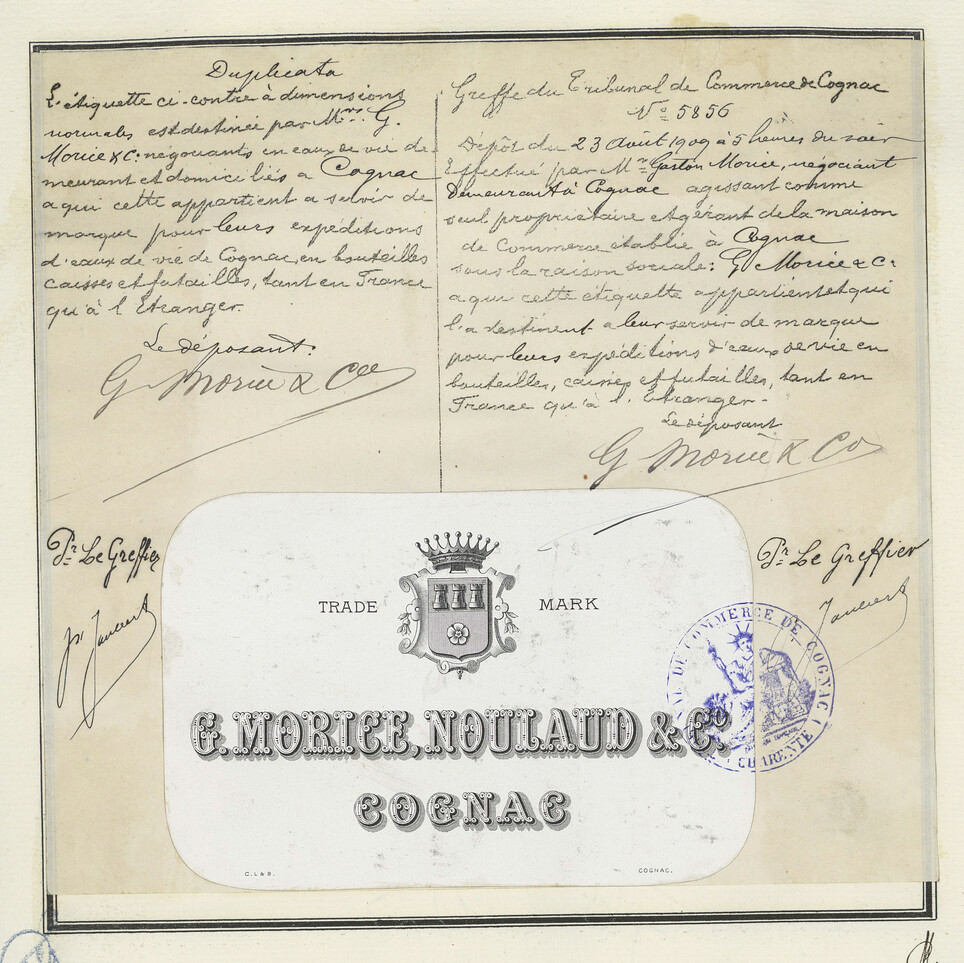 Duplicata
L'étiquette ci-contre à dimensions
normales est destinée par Mrs. G.
Morice & C: négociants en eaux de vie de
meurant et domiciliés à Cognac
a qui cette appartient a servir de
marque pour leurs expéditions
d'eaux de vie de Cognac, en bouteilles
caisses et futailles, tant en France
qu'à l'Etranger.
Le déposant.
G Morice & Cie
Pr Le Greffier
Greffe du Tribunal de Commerce de Cognac
No 5856
Dépôt du 23 Août 1909 à 5 heures du soir
Effectué par Mr Gaston Morice, négociant
demeurant à Cognac agissant comme
seul propriétaire et gérant de la maison
de Commerce établie à Cognac
sous la raison sociale: G Morice & C:
a qui cette étiquette appartient et qui
l'a destinent a leur servir de marque
pour leurs expéditions d'eaux de vie en
bouteilles, caisses et futailles, tant en
France qu'à l'Etranger -
Le déposant
G Morice & Co
Pr Le Greffier
TRADE MARK
G. MORICE, NOULAUD & Co.
COGNAC
C. L & B.
COGNAC.
DE COMMERCE DE COGNAC
CHARENTE